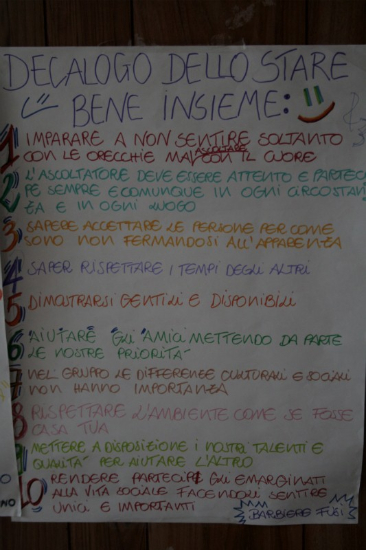 DECALOGO DELLO STARE
BENE INSIEME:
1 IMPARARE A NON SENTIRE SOLTANTO
CON LE ORECCHIE MA ASCOLTARE CON IL CUORE
2 L'ASCOLTATORE DEVE ESSERE ATTENTO E PARTECI
PE SEMPRE E COMUNQUE IN OGNI CIRCOSTAN
ZA E IN OGNI LUOGO
3 SAPERE ACCETTARE LE PERSONE PER COME
SONO NON FERMANDOSI ALL'APPARENZA
4 SAPER RISPETTARE I TEMPI DEGLI ALTRI
5 DIMOSTRARSI GENTILI E DISPONIBILI
6 AIUTARE GLI "AMICI" METTENDO DA PARTE
LE NOSTRE PRIORITÀ
7 NEL GRUPPO LE DIFFERENZE CULTURALI E SOCIALI
NON HANNO IMPORTANZA
8 RISPETTARE L'AMBIENTE COME SE FOSSE
CASA TUA
9 METTERE A DISPOSIZIONE I NOSTRI TALENTI E
QUALITÀ PER AIUTARE L'ALTRO
10 RENDERE PARTECIPI GLI EMARGINATI
ALLA VITA SOCIALE FACENDOLI SENTIRE
UNICI E IMPORTANTI
BARBIERE FUSI